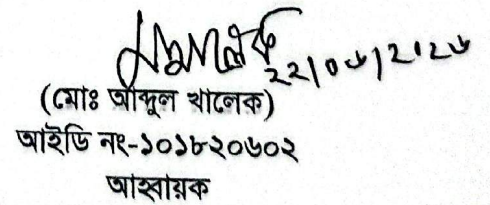 ২২/০৬/২০২৬
(মোঃ আব্দুল খালেক)
আইডি নং-১০১৮২০৬০২
আহবায়ক